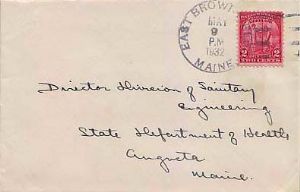 EAST BROWN
MAY
9
P.M
1932
MAINE
2 2
TWO CENTS
Director Division of Sanitary
Engineering
State Department of Health
Augusta
Maine.